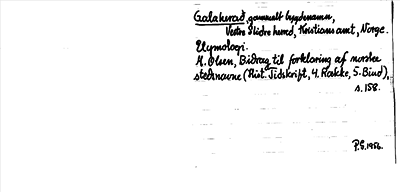 Galaherað, gammelt bygdenamn,
Vestre Slidre herred, Kristians amt, Norge.
Etymologi.
M. Olsen, Bidrag til forklaring af norske
stednavne (Hist. Tidskrift, 4. Række, 5. Bind),
s. 158.
P.S. 1956.